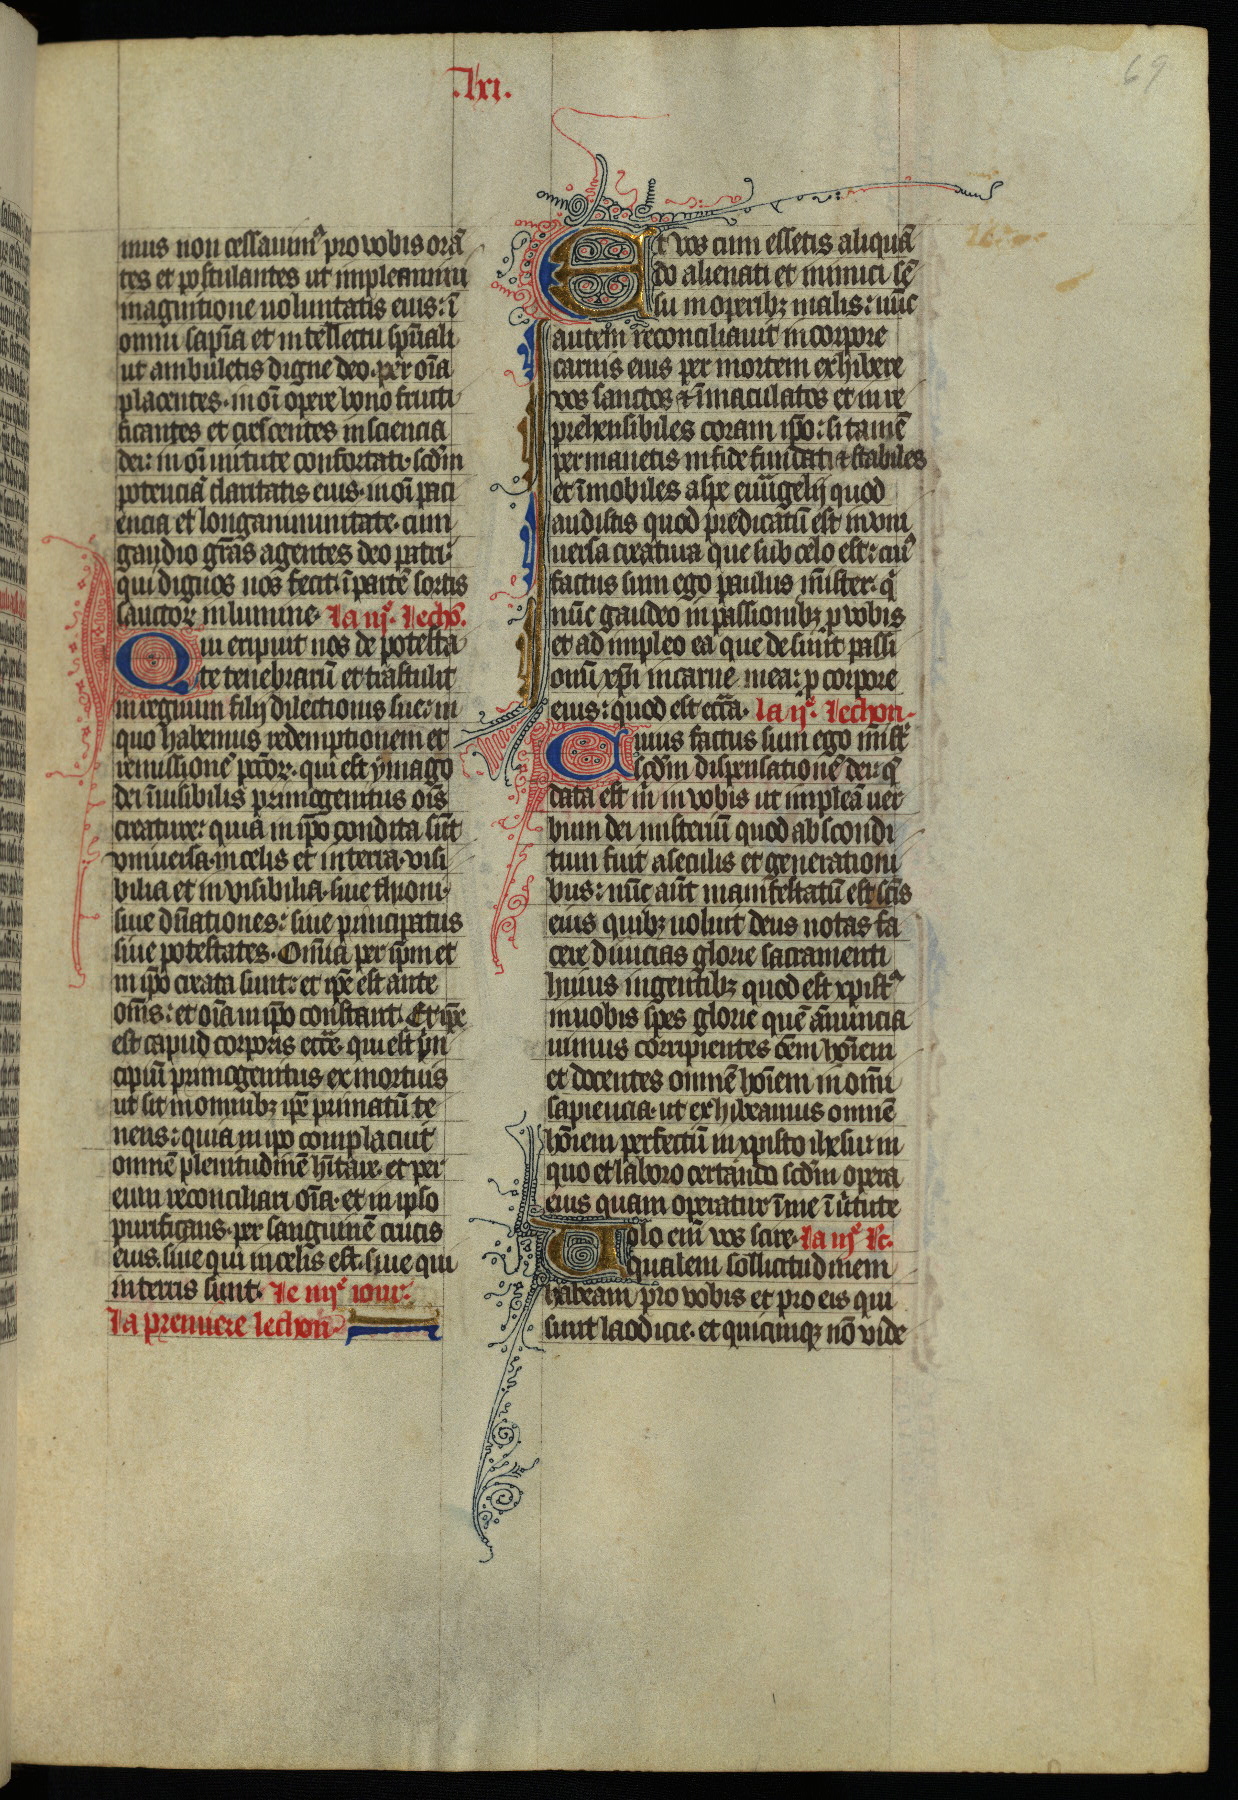 .lxi.
69
mus non cessauimꝰ pro vobis orā
tes et postulantes ut impleamini
in agnitione uoluntatis eius: ī
omni sapīa et intellectu spūali
ut ambuletis digne deo. per oīa
placentes. in oī opere bono fructi
ficantes et crescentes in sciencia
dei: in oī uirtute confortati. scdm̄
potenciā claritatis eius. in oī paci
encia et longanimitate. cum
gaudio grās agentes deo patri:
qui dignos nos fecit: ī partē sortis
sanctoꝝ in lumine. la iijᵉ. lechoꝰ.
Qui eripuit nos de potesta
te tenebrarū et trāstulit
in regnum filij dilectionis sue: in
quo habemus redemptionem et
remissionē pccōꝝ. qui est ymago
dei īuisibilis primogenitus oīs
creature: quia in ip̄o condita sūt
vniuersa. in celis et in terra. visi
bilia et in visibilia. siue throni.
siue dn̄ationes: siue principatus
siue potestates. Omīa per ip̄m et
in ip̄o creata sunt: et ip̄e est ante
om̄s: et oīa in ip̄o constant. Et ip̄e
est capud corporis ecc̄e. qui est p̄n
cipiū primogenitus ex mortuis
ut sit in omnibꝫ ip̄e primatū te
nens: quia in ip̄o complacuit
omnē plenitudinē hītare. et per
eum reconciliari oīa. et in ipso
purificans. per sanguinē crucis
eius. siue qui in celis est. siue qui
in terris sunt. le iiijᵉ iour:
la premiere lechon.
Et vos cum essetis aliquā
do alienati et inimici sē
su in operibꝫ malis: nūc
autem reconciliauit in corpore
carnis eius per mortem exhibere
vos sanctos ⁊ īmaculatos et in re
prehensibiles coram ip̄o: si tamē
permanetis in fide fundati ⁊ stabiles
et īmobiles a spe euuāgelij quod
audistis quod predicatū est in vni
uersa creatura que sub celo est: cuiꝰ
factus sum ego paulus mīster. q̄
nūc gaudeo in passionibꝫ p vobis
et ad impleo ea que de sunt passi
onū xp̄i in carne mea: p corpore
eius: quod est eccīa. la ijᵉ. lechon.
Cuius factus sum ego mīstʳ
scdm̄ dispensationē dei: q̄
data est m̄ in vobis ut impleā uer
bum dei misteriū quod abscondi
tum fuit a seculis et generationi
bus: nūc aūt manifestatū est scīs
eius quibꝫ uoluit deus notas fa
cere diuicias glorie sacramenti
huius in gentibꝫ quod est xpistꝰ
in uobis spes glorie quē ānuncia
uimus corripientes oēm hoīem
et docentes omnē hoīem in omī
sapiencia. ut exhibeamus omnē
hoīem perfectū in xpisto ihesu in
quo et laboro certando scdm̄ opera
eius quam operatur ī me ī ūtute
Volo enī vos scire. la iijᵉ lc̄.
qualem sollicitudinem
habeam pro vobis et pro eis qui
sunt laodicie. et quicūqꝫ nō vide